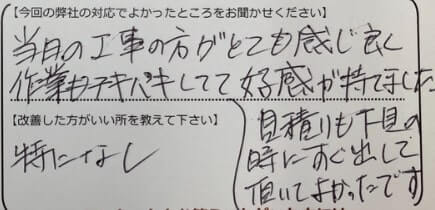 【今回の弊社の対応でよかったところをお聞かせください】
当日の工事の方がとても感じ良く
作業もテキパキしてて好感が持てました
見積りも下見の
時にすぐ出して
頂いてよかったです
【改善した方がいい所を教えて下さい】
特になし